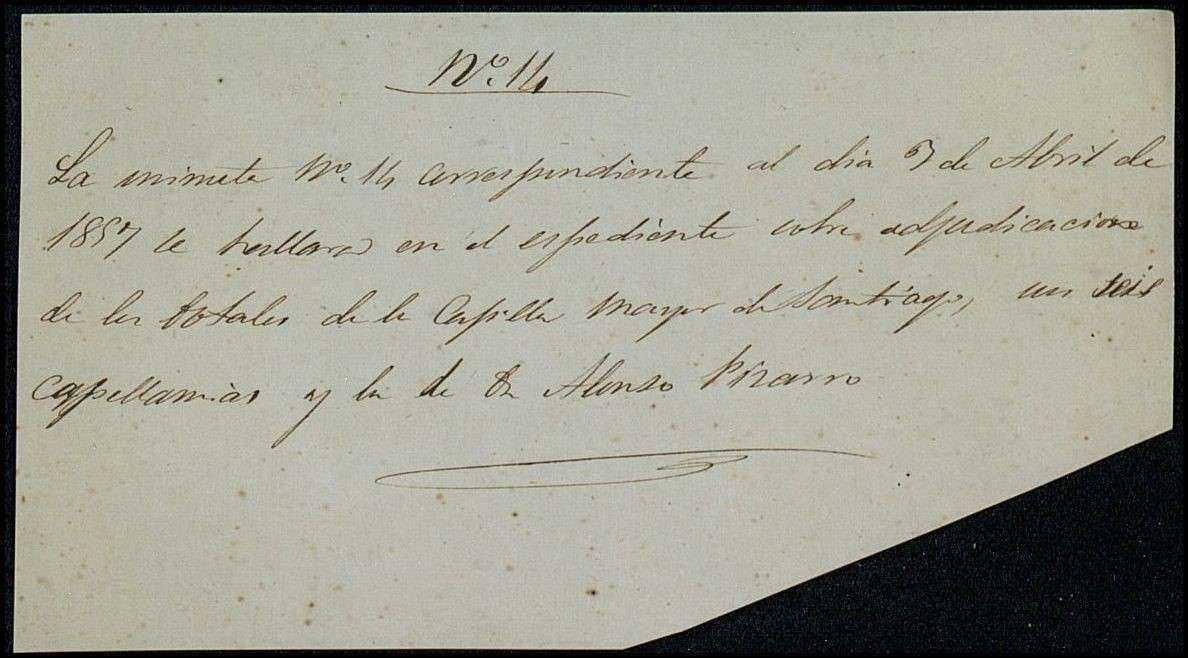 Nº. 14
La minuta Nº. 14 correspondiente al dia 7 de Abril de
1857 se hallara en el espediente sobre adjudicacion
de los totales de la Capilla mayor de Santiago, sus seis
capellanias y la de Dn Alonso Pizarro